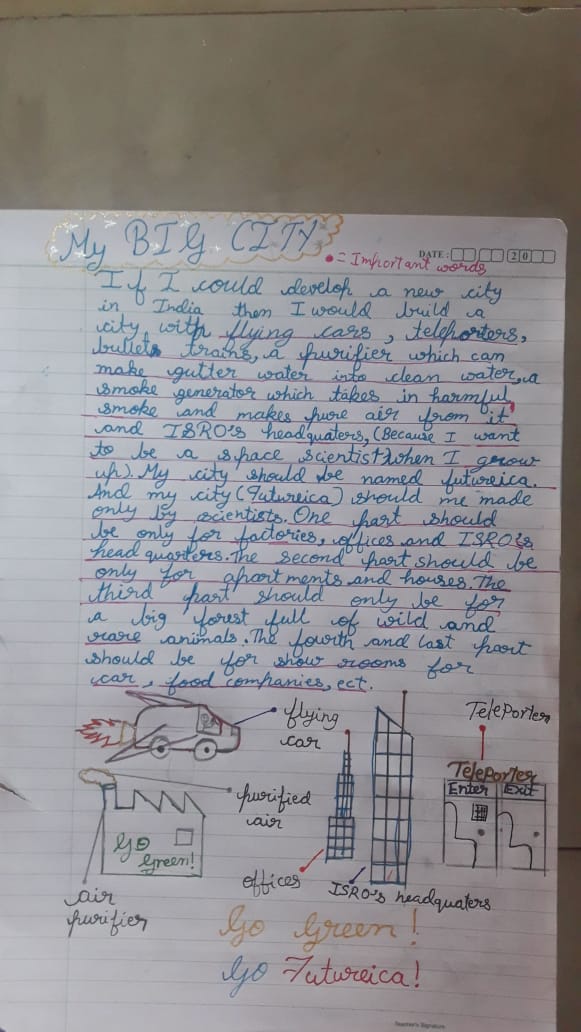 My BIG CITY
DATE: 20
= Important words
If I could develop a new city
in India then I would build a
city with flying cars, teleporters,
bullets trains, a purifier which can
make gutter water into clean water, a
smoke generator which takes in harmful
smoke and makes pure air from it
and ISRO's headquaters, (Because I want
to be a space scientist when I grow
up). My city should be named futureica.
And my city (Futureica) should me made
only by scientists. One part should
be only for factories, offices and ISRO's
head quarters. The second part should be
only for apartments and houses. The
third part should only be for
a big forest full of wild and
rare animals. The fourth and last part
should be for show rooms for
car, food companies, ect.
flying
car
TelePorter
TelePorter
Enter Exit
purified
air
GO
Green!
offices
ISRO's headquaters
air
purifier
Go Green!
Go Futureica!
Teacher's Signature